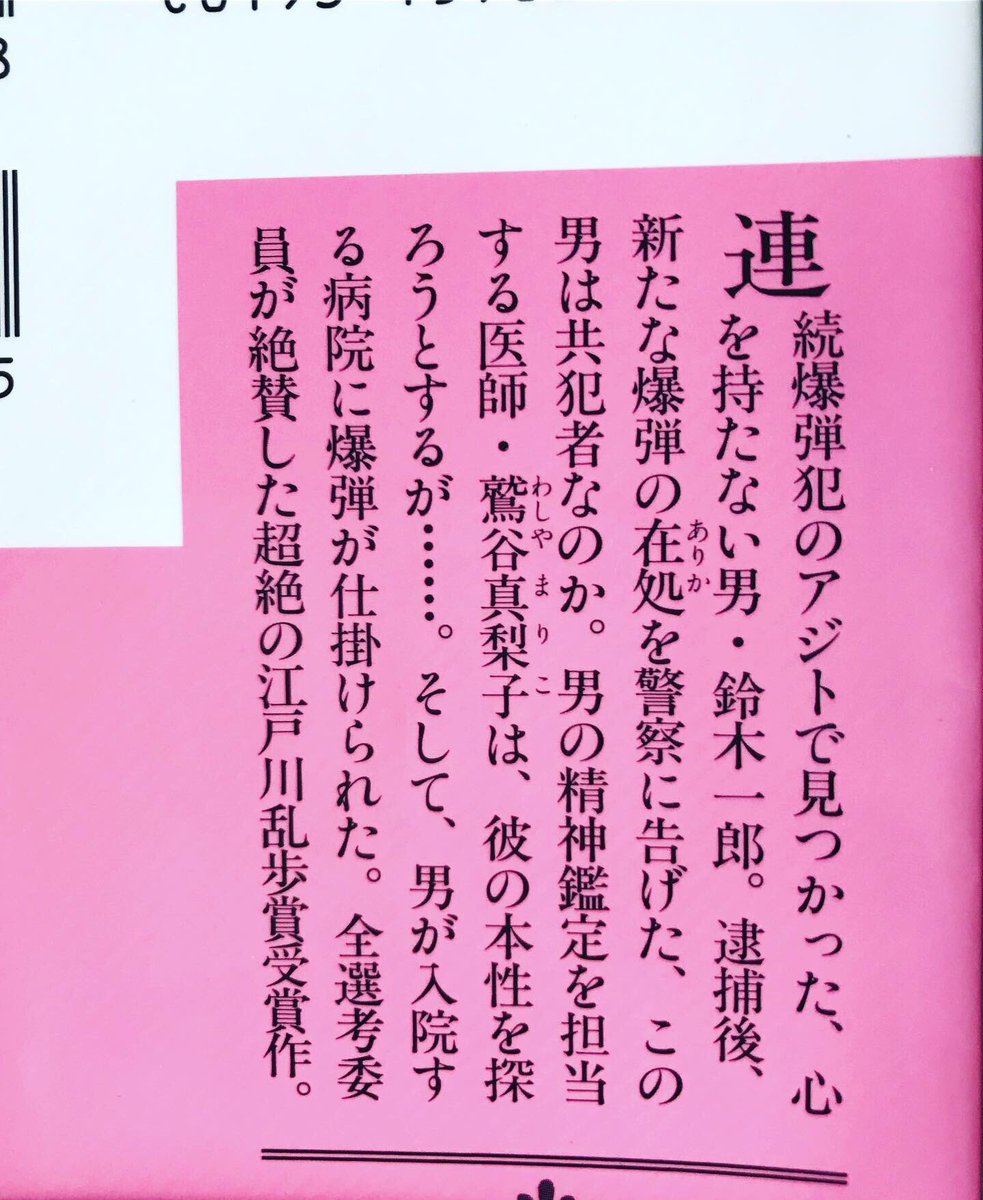 連続爆弾犯のアジトで見つかった、心
を持たない男・鈴木一郎。逮捕後、
新たな爆弾の在処を警察に告げた、この
ありか
男は共犯者なのか。男の精神鑑定を担当
する医師・鷲谷真梨子は、彼の本性を探
わしやまりこ
ろうとするが……。そして、男が入院す
る病院に爆弾が仕掛けられた。全選考委
員が絶賛した超絶の江戸川乱歩賞受賞作。
8
5